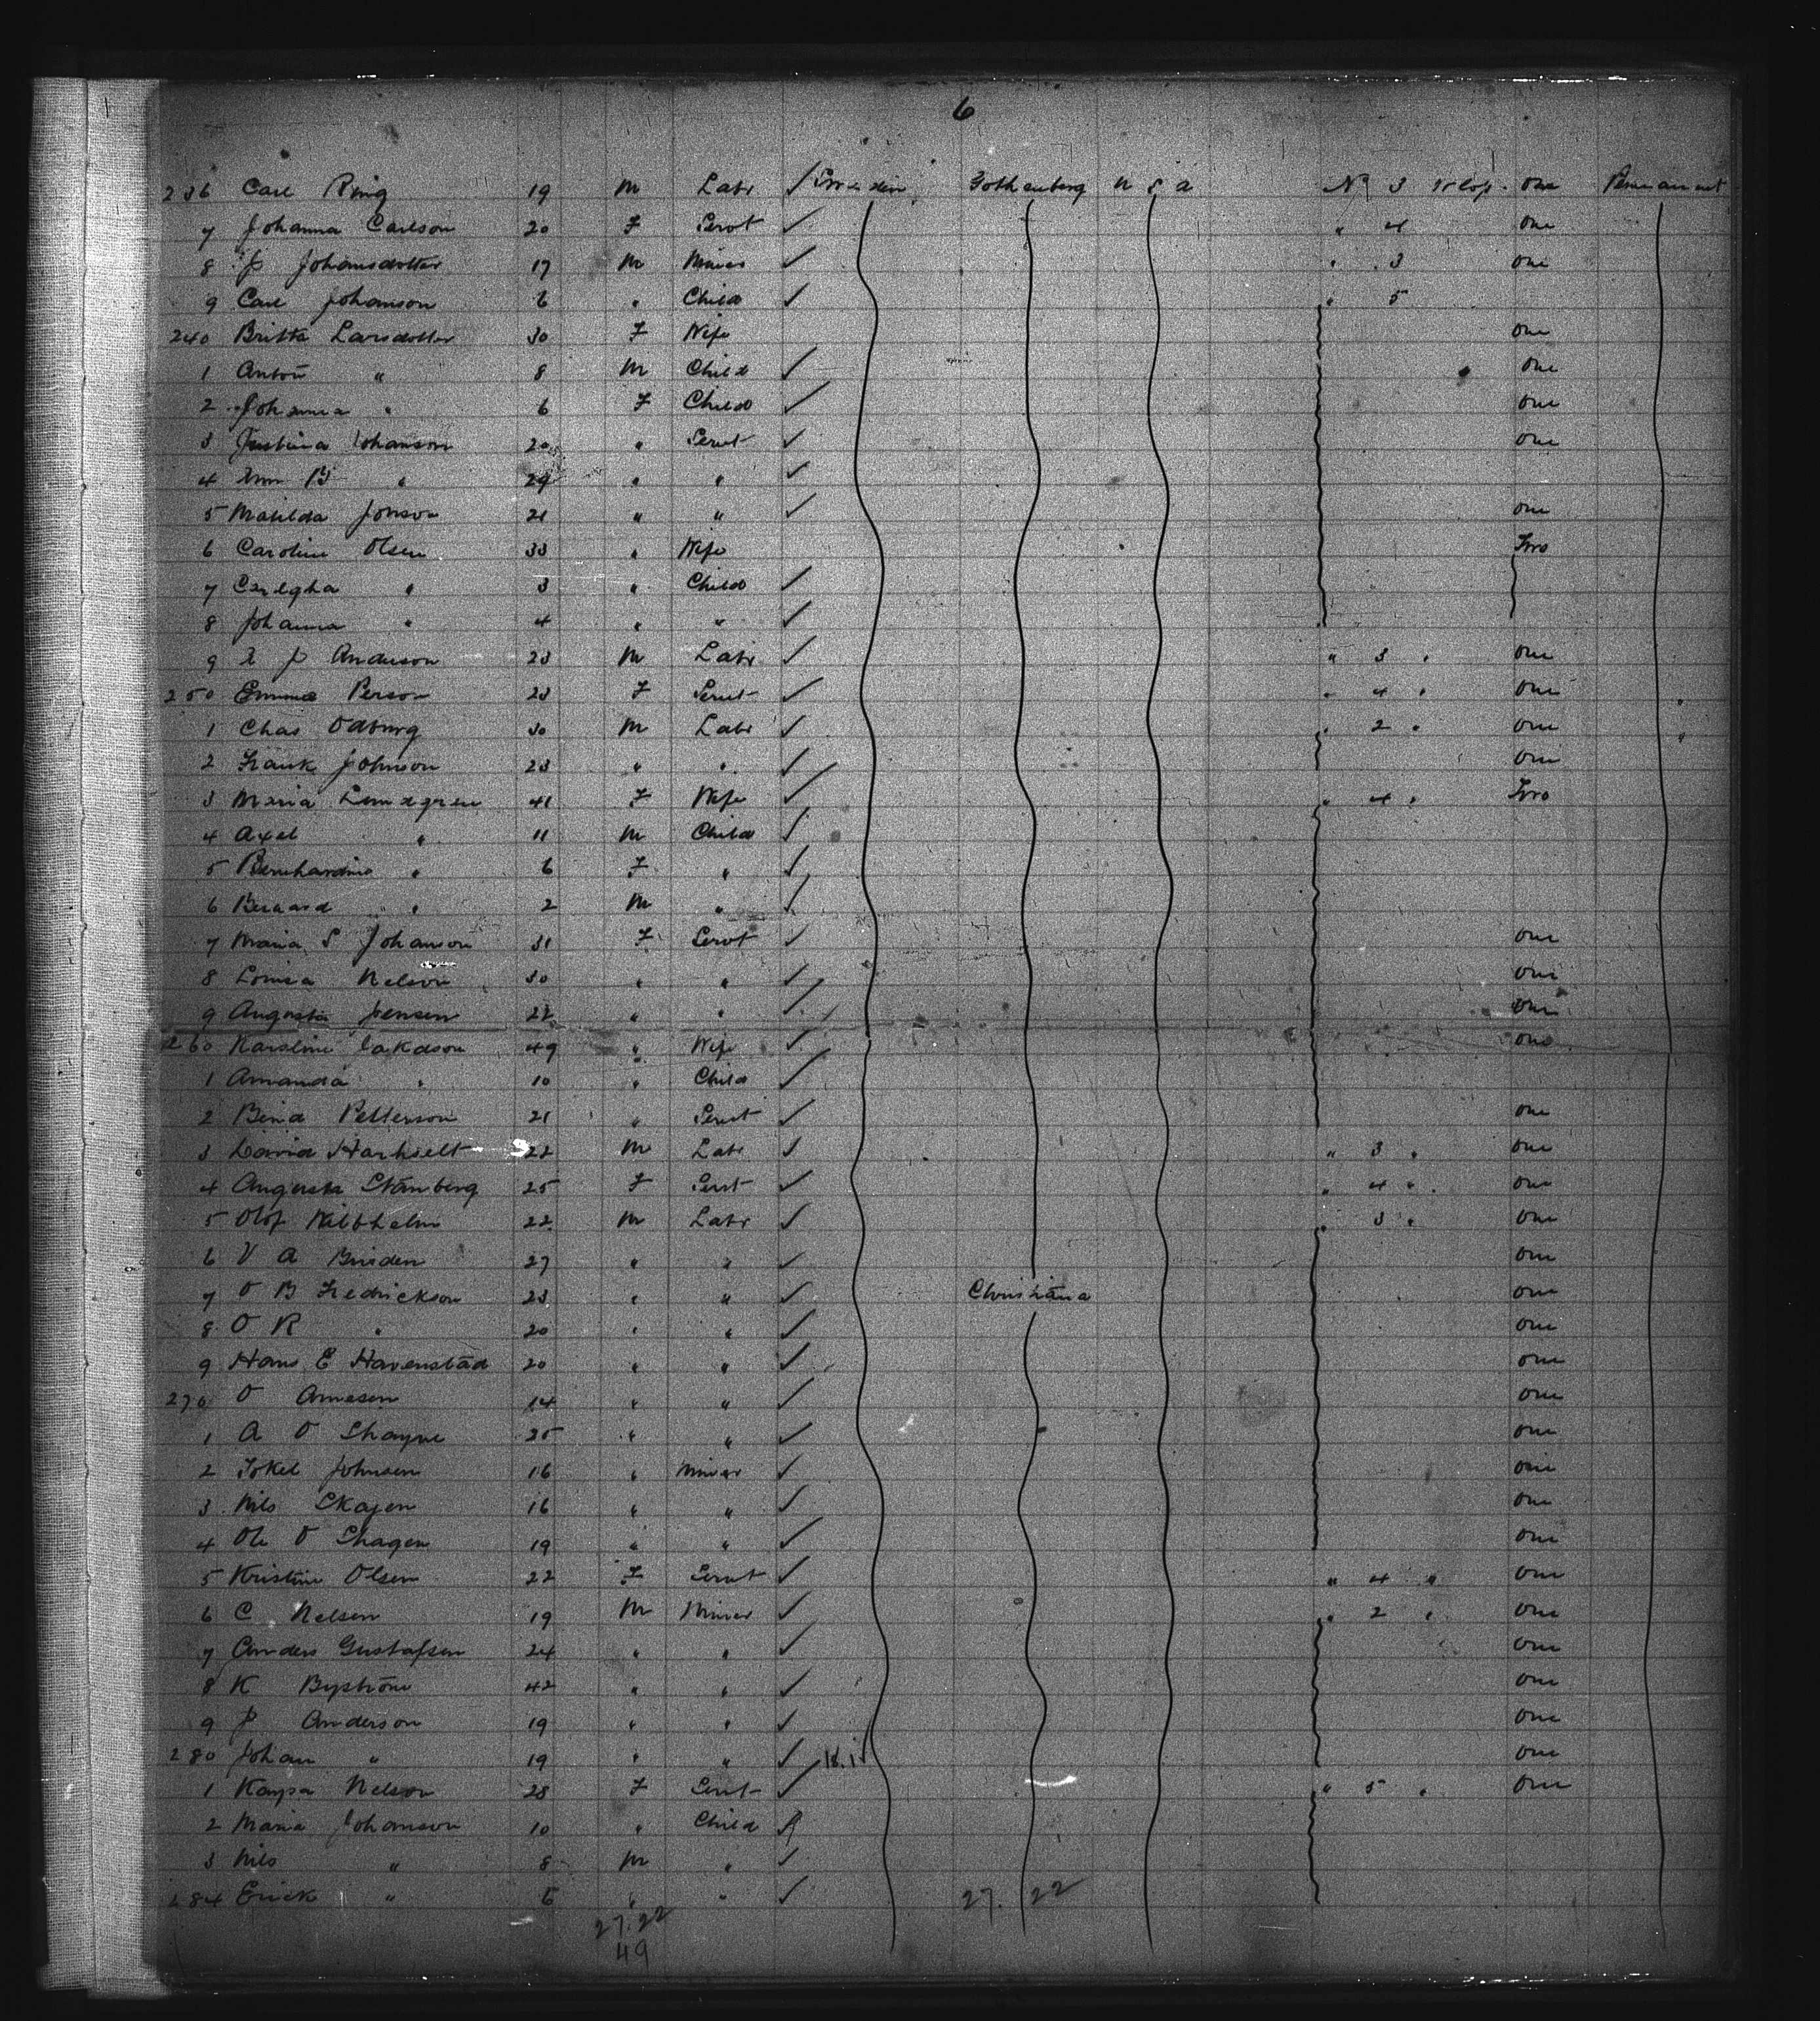 6
236 Carl Ring 19 M Labr ✓ Sweden Gothenberg U S A No 3 one Permanent
7 Johanna Carlson 20 F Servt ✓ " 4 one
8 P Johansdotter 17 M Miner ✓ " 3 one
9 Carl Johanson 6 " Child ✓ " 5
240 Britta Larsdotter 30 F Wife one
1 Anton " 8 M Child ✓ one
2 Johanna " 6 F Child ✓ one
3 Justina Johanson 20 " Servt ✓ one
4 B " 29 " " ✓
5 Matilda Jonson 21 " " ✓ one
6 Caroline Olsen 33 " Wife Two
7 " 3 " Child ✓
8 Johanna " 4 " " ✓
9 P Anderson 23 M Labr ✓ " 3 " one
250 Emma Person 23 F Servt ✓ " 4 " one
1 Chas Odburg 30 M Labr ✓ " 2 " one
2 Frank Johnson 23 " " ✓ one
3 Maria 41 F Wife ✓ " 4 " Two
4 Axel " 11 M Child ✓
5 Bernhardina " 6 F " ✓
6 Bernard " 2 M " ✓
7 Maria S Johanson 31 F Servt ✓ one
8 Louisa Nelson 30 " " ✓ one
9 Augusta Jensen 22 " " ✓ one
260 Karoline 49 " Wife ✓ one
1 Amanda " 10 " Child ✓
2 Petterson 21 " Servt ✓ one
3 David 22 M Labr ✓ " 3 " one
4 Augusta Stanberg 25 F Servt ✓ " 4 " one
5 Olof 22 M Labr ✓ " 3 " one
6 V A 27 " " ✓ one
7 O B Fredrickson 23 " " ✓ Christiana one
8 O R " 20 " " ✓ one
9 Hans E Havenstad 20 " " ✓ one
270 O Arnesen 14 " " ✓ one
1 A O 25 " " ✓ one
2 Johnsen 16 " Miner ✓ one
3 Nils Skagen 16 " " ✓ one
4 Ole O Shagen 19 " " ✓ one
5 Kristine Olsen 22 F Servt ✓ " 4 " one
6 C Nelsen 19 M Miner ✓ " 2 " one
7 Anders Gustafsen 24 " " ✓ one
8 K Byström 42 " " ✓ one
9 P Anderson 19 " " ✓ one
280 Johan " 19 " " ✓ one
1 Kaysa Nelson 28 F Servt ✓ " 5 " one
2 Maria Johanson 10 " Child
3 Nils " 8 M " ✓
284 Erick " 6 " " ✓ 27. 22
27.22
49